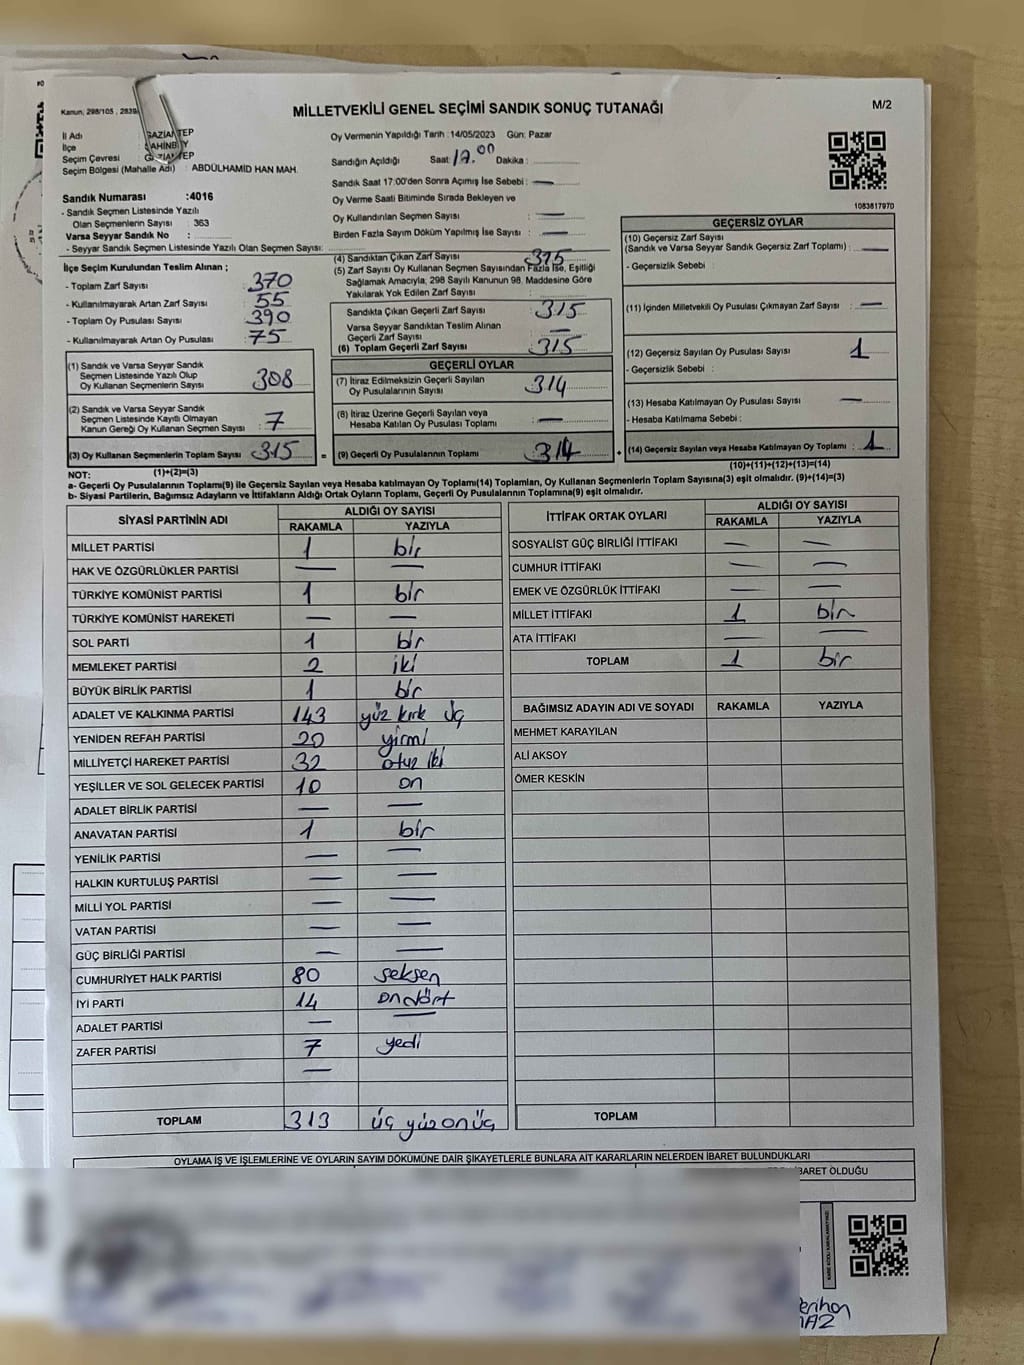 Kanun, 298/105 , 2839
MİLLETVEKİLİ GENEL SEÇİMİ SANDIK SONUÇ TUTANAĞI
M/2
İl Adı GAZİANTEP
İlçe ŞAHİNBEY
Seçim Çevresi GAZİANTEP
Seçim Bölgesi (Mahalle Adı) : ABDÜLHAMİD HAN MAH.
Oy Vermenin Yapıldığı Tarih : 14/05/2023 Gün: Pazar
Sandığın Açıldığı Saat 17.00 Dakika :
Sandık Saat 17:00'den Sonra Açımış İse Sebebi : —
Oy Verme Saati Bitiminde Sırada Bekleyen ve
Oy Kullandırılan Seçmen Sayısı : —
Birden Fazla Sayım Döküm Yapılmış İse Sayısı : —
1083817970
Sandık Numarası :4016
- Sandık Seçmen Listesinde Yazılı
Olan Seçmenlerin Sayısı : 363
Varsa Seyyar Sandık No :
- Seyyar Sandık Seçmen Listesinde Yazılı Olan Seçmen Sayısı:
İlçe Seçim Kurulundan Teslim Alınan ;
- Toplam Zarf Sayısı : 370
- Kullanılmayarak Artan Zarf Sayısı : 55
- Toplam Oy Pusulası Sayısı : 390
- Kullanılmayarak Artan Oy Pusulası : 75
(1) Sandık ve Varsa Seyyar Sandık
Seçmen Listesinde Yazılı Olup
Oy Kullanan Seçmenlerin Sayısı : 308
(2) Sandık ve Varsa Seyyar Sandık
Seçmen Listesinde Kayıtlı Olmayan
Kanun Gereği Oy Kullanan Seçmen Sayısı : 7
(3) Oy Kullanan Seçmenlerin Toplam Sayısı : 315
(1)+(2)=(3)
(4) Sandıktan Çıkan Zarf Sayısı : 315
(5) Zarf Sayısı Oy Kullanan Seçmen Sayısından Fazla İse, Eşitliği
Sağlamak Amacıyla, 298 Sayılı Kanunun 98. Maddesine Göre
Yakılarak Yok Edilen Zarf Sayısı :
Sandıkta Çıkan Geçerli Zarf Sayısı : 315
Varsa Seyyar Sandıktan Teslim Alınan
Geçerli Zarf Sayısı : —
(6) Toplam Geçerli Zarf Sayısı : 315
GEÇERLİ OYLAR
(7) İtiraz Edilmeksizin Geçerli Sayılan
Oy Pusulalarının Sayısı : 314
(8) İtiraz Üzerine Geçerli Sayılan veya
Hesaba Katılan Oy Pusulası Toplamı : —
= (9) Geçerli Oy Pusulalarının Toplamı : 314 +
GEÇERSİZ OYLAR
(10) Geçersiz Zarf Sayısı
(Sandık ve Varsa Seyyar Sandık Geçersiz Zarf Toplamı) : —
- Geçersizlik Sebebi :
(11) İçinden Milletvekili Oy Pusulası Çıkmayan Zarf Sayısı : —
(12) Geçersiz Sayılan Oy Pusulası Sayısı : 1
- Geçersizlik Sebebi :
(13) Hesaba Katılmayan Oy Pusulası Sayısı : —
- Hesaba Katılmama Sebebi :
(14) Geçersiz Sayılan veya Hesaba Katılmayan Oy Toplamı : 1
(10)+(11)+(12)+(13)=(14)
NOT:
a- Geçerli Oy Pusulalarının Toplamı(9) ile Geçersiz Sayılan veya Hesaba katılmayan Oy Toplamı(14) Toplamları, Oy Kullanan Seçmenlerin Toplam Sayısına(3) eşit olmalıdır. (9)+(14)=(3)
b- Siyasi Partilerin, Bağımsız Adayların ve İttifakların Aldığı Ortak Oyların Toplamı, Geçerli Oy Pusulalarının Toplamına(9) eşit olmalıdır.
SİYASİ PARTİNİN ADI ALDIĞI OY SAYISI
RAKAMLA YAZIYLA
MİLLET PARTİSİ 1 bir
HAK VE ÖZGÜRLÜKLER PARTİSİ — —
TÜRKİYE KOMÜNİST PARTİSİ 1 bir
TÜRKİYE KOMÜNİST HAREKETİ — —
SOL PARTİ 1 bir
MEMLEKET PARTİSİ 2 iki
BÜYÜK BİRLİK PARTİSİ 1 bir
ADALET VE KALKINMA PARTİSİ 143 yüz kırk üç
YENİDEN REFAH PARTİSİ 20 yirmi
MİLLİYETÇİ HAREKET PARTİSİ 32 otuz iki
YEŞİLLER VE SOL GELECEK PARTİSİ 10 on
ADALET BİRLİK PARTİSİ — —
ANAVATAN PARTİSİ 1 bir
YENİLİK PARTİSİ — —
HALKIN KURTULUŞ PARTİSİ — —
MİLLİ YOL PARTİSİ — —
VATAN PARTİSİ — —
GÜÇ BİRLİĞİ PARTİSİ — —
CUMHURİYET HALK PARTİSİ 80 seksen
İYİ PARTİ 14 on dört
ADALET PARTİSİ — —
ZAFER PARTİSİ 7 yedi
—
TOPLAM 313 üç yüz on üç
İTTİFAK ORTAK OYLARI ALDIĞI OY SAYISI
RAKAMLA YAZIYLA
SOSYALİST GÜÇ BİRLİĞİ İTTİFAKI — —
CUMHUR İTTİFAKI — —
EMEK VE ÖZGÜRLÜK İTTİFAKI — —
MİLLET İTTİFAKI 1 bir
ATA İTTİFAKI — —
TOPLAM 1 bir
BAĞIMSIZ ADAYIN ADI VE SOYADI RAKAMLA YAZIYLA
MEHMET KARAYILAN
ALİ AKSOY
ÖMER KESKİN
TOPLAM
OYLAMA İŞ VE İŞLEMLERİNE VE OYLARIN SAYIM DÖKÜMÜNE DAİR ŞİKAYETLERLE BUNLARA AİT KARARLARIN NELERDEN İBARET BULUNDUKLARI
İBARET OLDUĞU